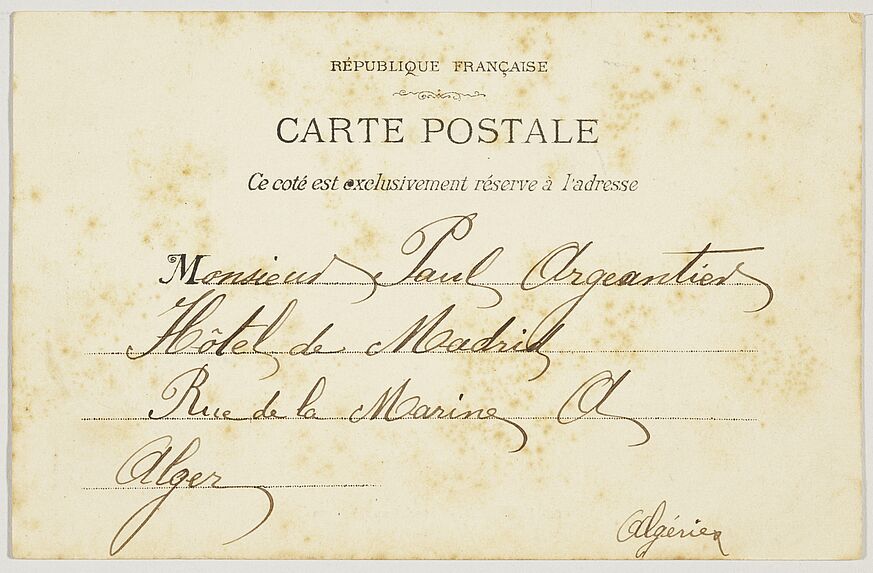 RÉPUBLIQUE FRANÇAISE
CARTE POSTALE
Ce coté est exclusivement réserve à l'adresse
Monsieur Paul Argeantier
Hôtel de Madrid
Rue de la Marine A
Alger
Algérie